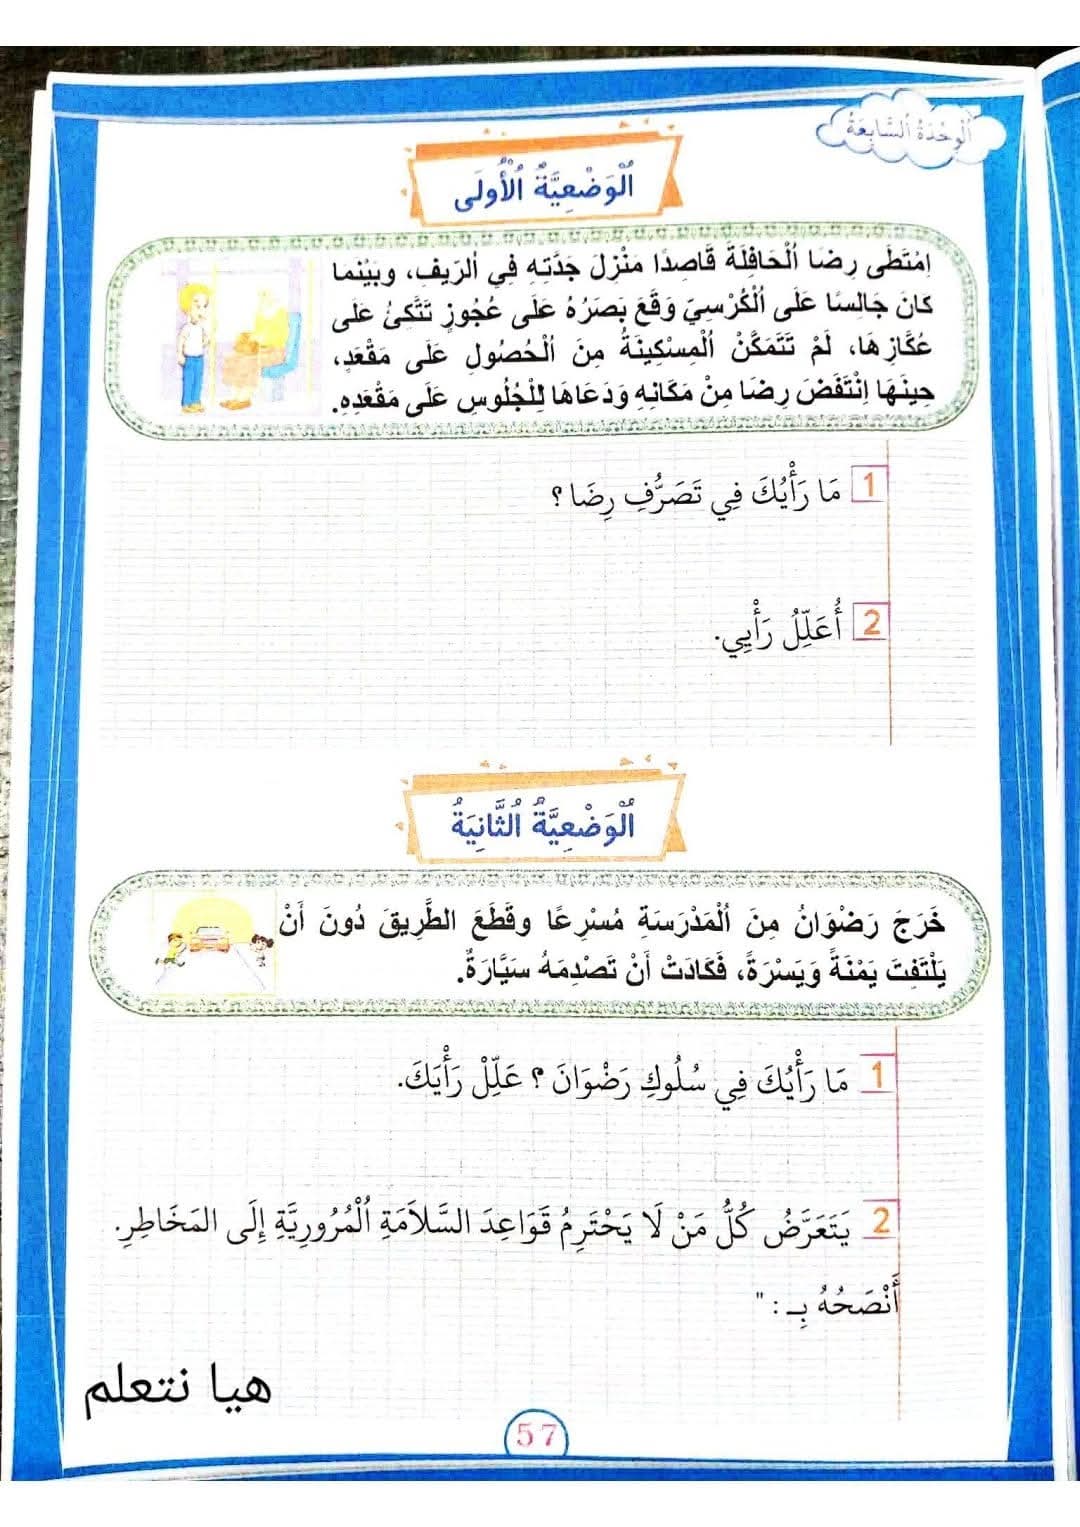 اَلْوَحْدَةُ اَلسَّابِعَةُ
اَلْوَضْعِيَّةُ اَلْأُولَى
اِمْتَطَى رِضَا اَلْحَافِلَةَ قَاصِدًا مَنْزِلَ جَدَّتِهِ فِي اَلرِّيفِ، وبَيْنَما
كانَ جَالِسًا عَلَى اَلْكُرْسِيِّ وَقَعَ بَصَرُهُ عَلَى عُجُوزٍ تَتَّكِئُ عَلَى
عُكَّازِهَا، لَمْ تَتَمَكَّنْ اَلْمِسْكِينَةُ مِنَ اَلْحُصُولِ عَلَى مَقْعَدٍ،
حِينَهَا اِنْتَفَضَ رِضَا مِنْ مَكَانِهِ وَدَعَاهَا لِلْجُلُوسِ عَلَى مَقْعَدِهِ.
1 مَا رَأْيُكَ فِي تَصَرُّفِ رِضَا ؟
2 أُعَلِّلُ رَأْيِي.
اَلْوَضْعِيَّةُ اَلثَّانِيَةُ
خَرَجَ رَضْوَانُ مِنَ اَلْمَدْرَسَةِ مُسْرِعًا وقَطَعَ الطَّرِيقَ دُونَ أَنْ
يَلْتَفِتَ يَمْنَةً وَيَسْرَةً، فَكَادَتْ أَنْ تَصْدِمَهُ سَيَّارَةٌ.
1 مَا رَأْيُكَ فِي سُلُوكِ رَضْوَانَ ؟ عَلِّلْ رَأْيَكَ.
2 يَتَعَرَّضُ كُلُّ مَنْ لَا يَحْتَرِمُ قَوَاعِدَ السَّلَامَةِ اَلْمُرُورِيَّةِ إِلَى المَخَاطِرِ.
أَنْصَحُهُ بِـ : "
هيا نتعلم
57